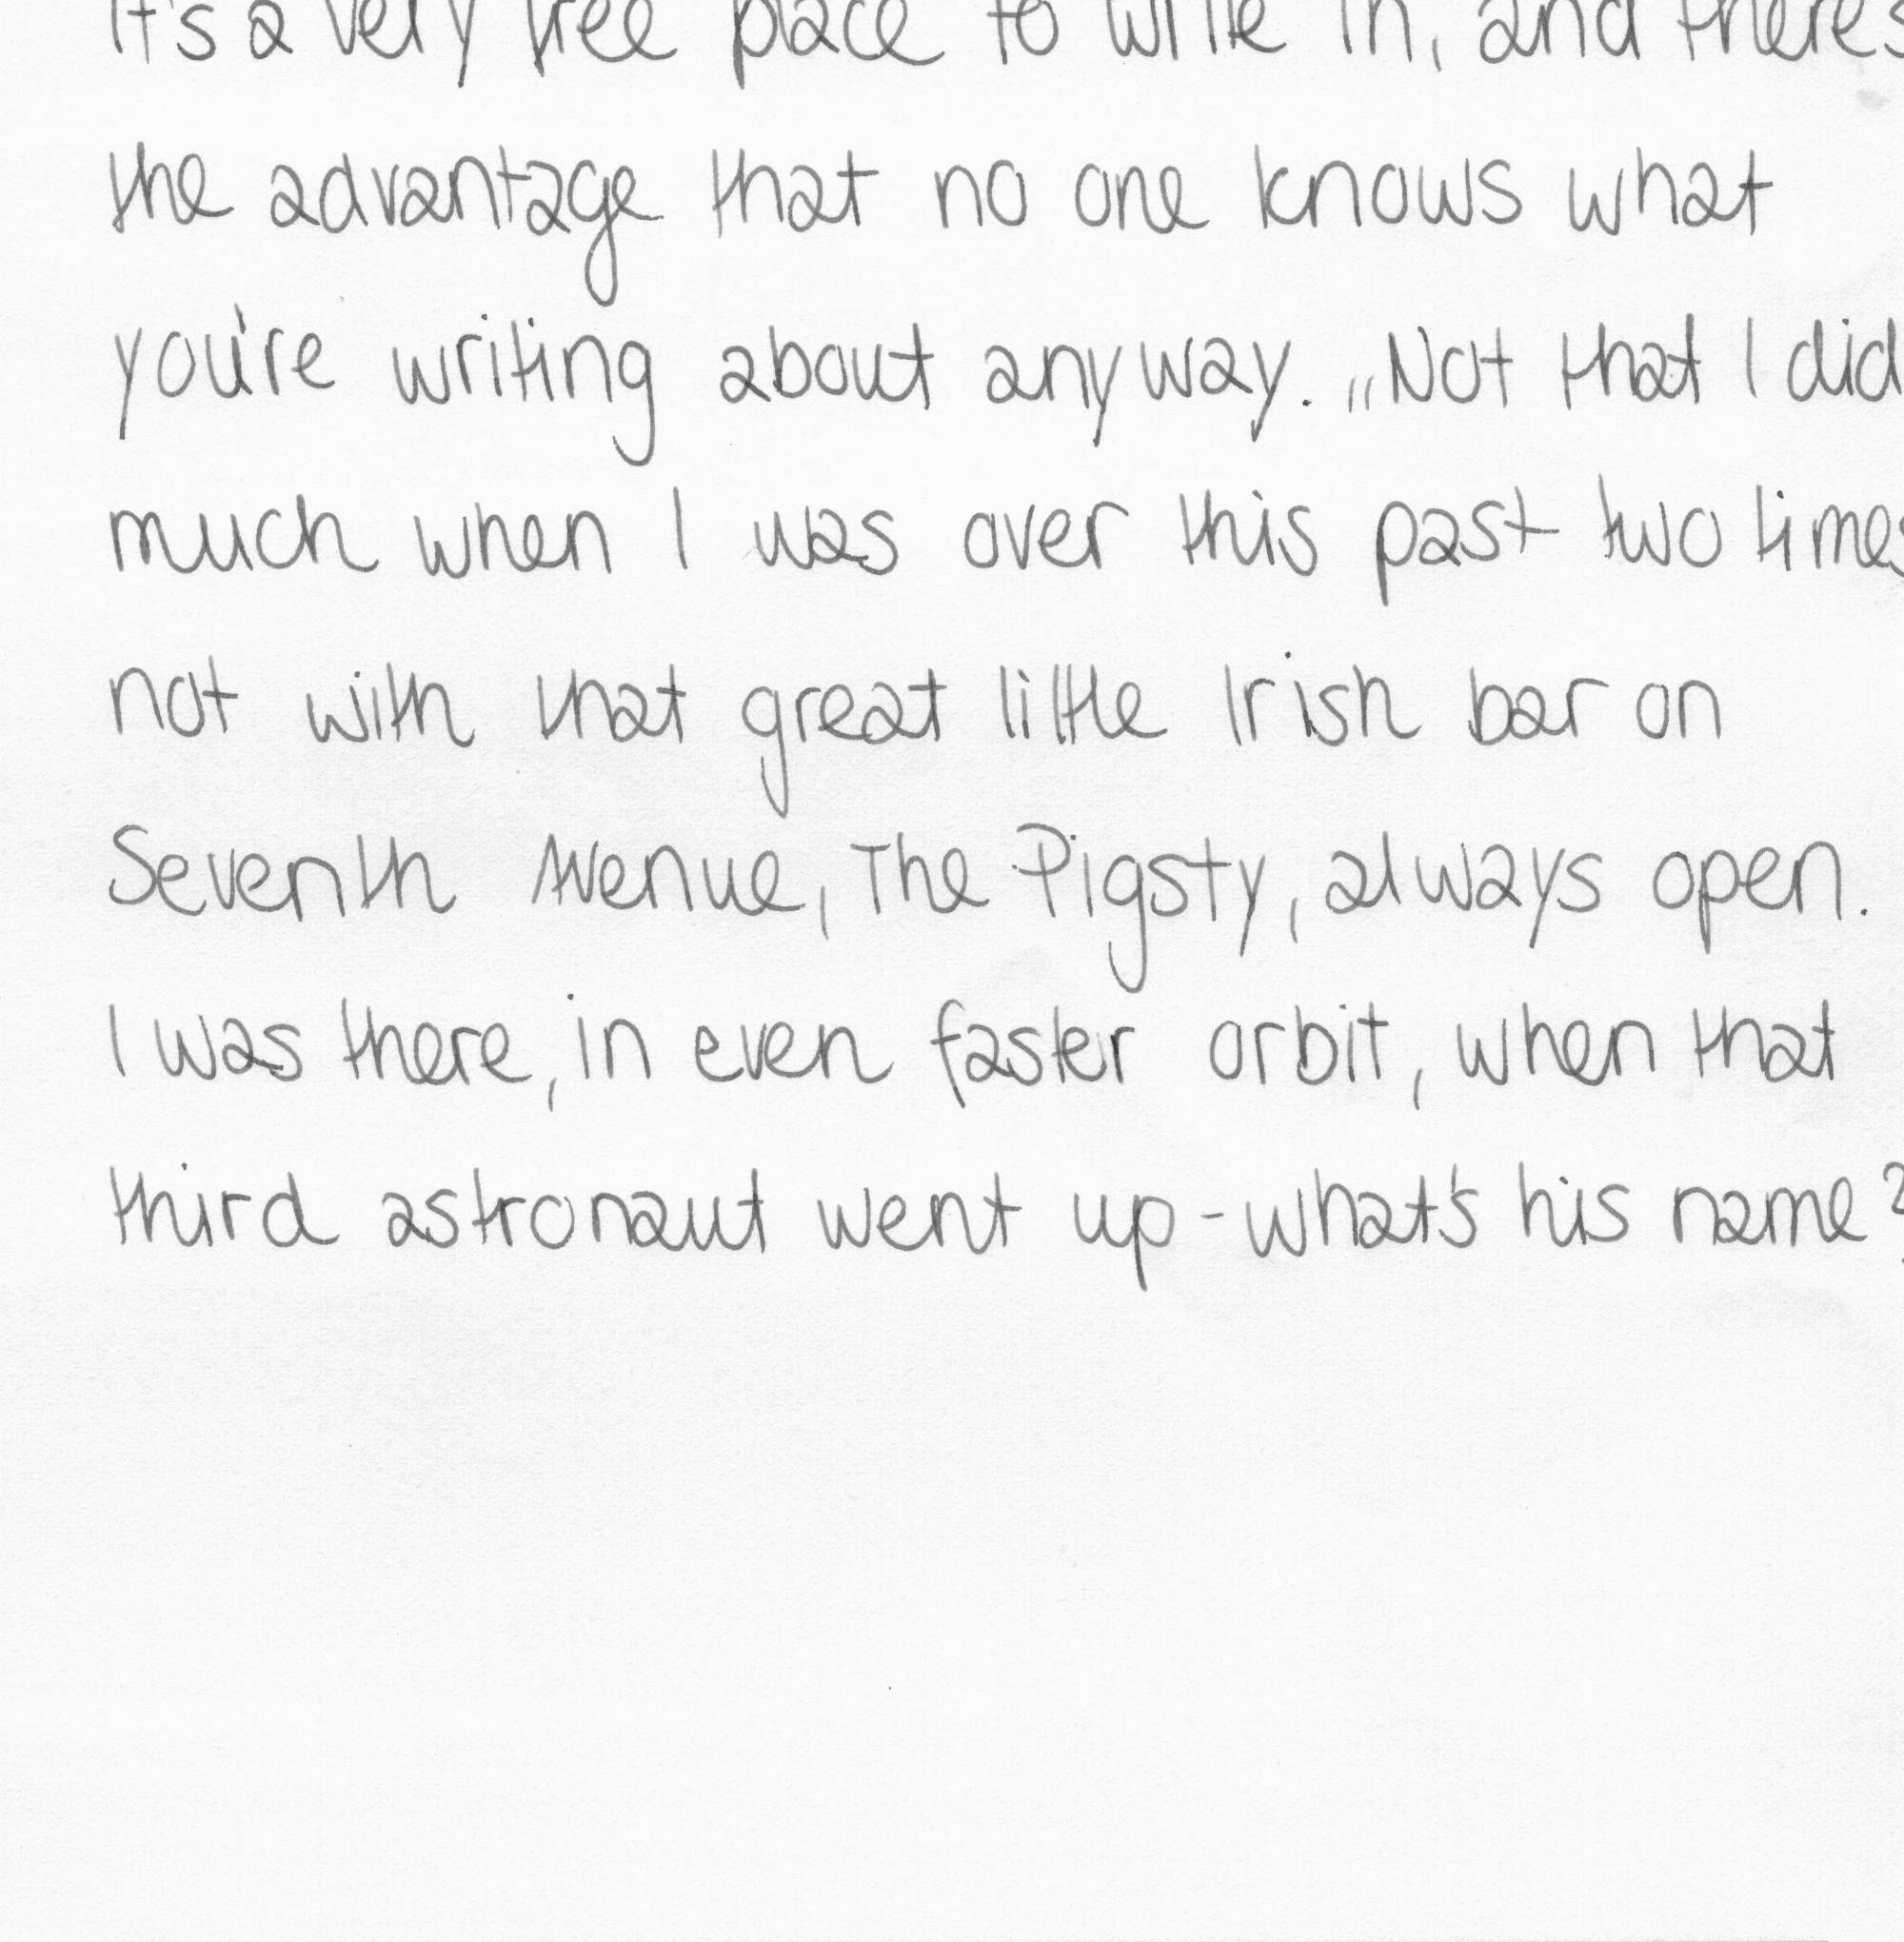 It's a very free place to write in, and there's
the advantage that no one knows what
you're writing about anyway. „Not that I did
much when I was over this past two times
not with that great little Irish bar on
Seventh Avenue, The Pigsty, always open.
I was there, in even faster orbit, when that
third astronaut went up - what's his name?